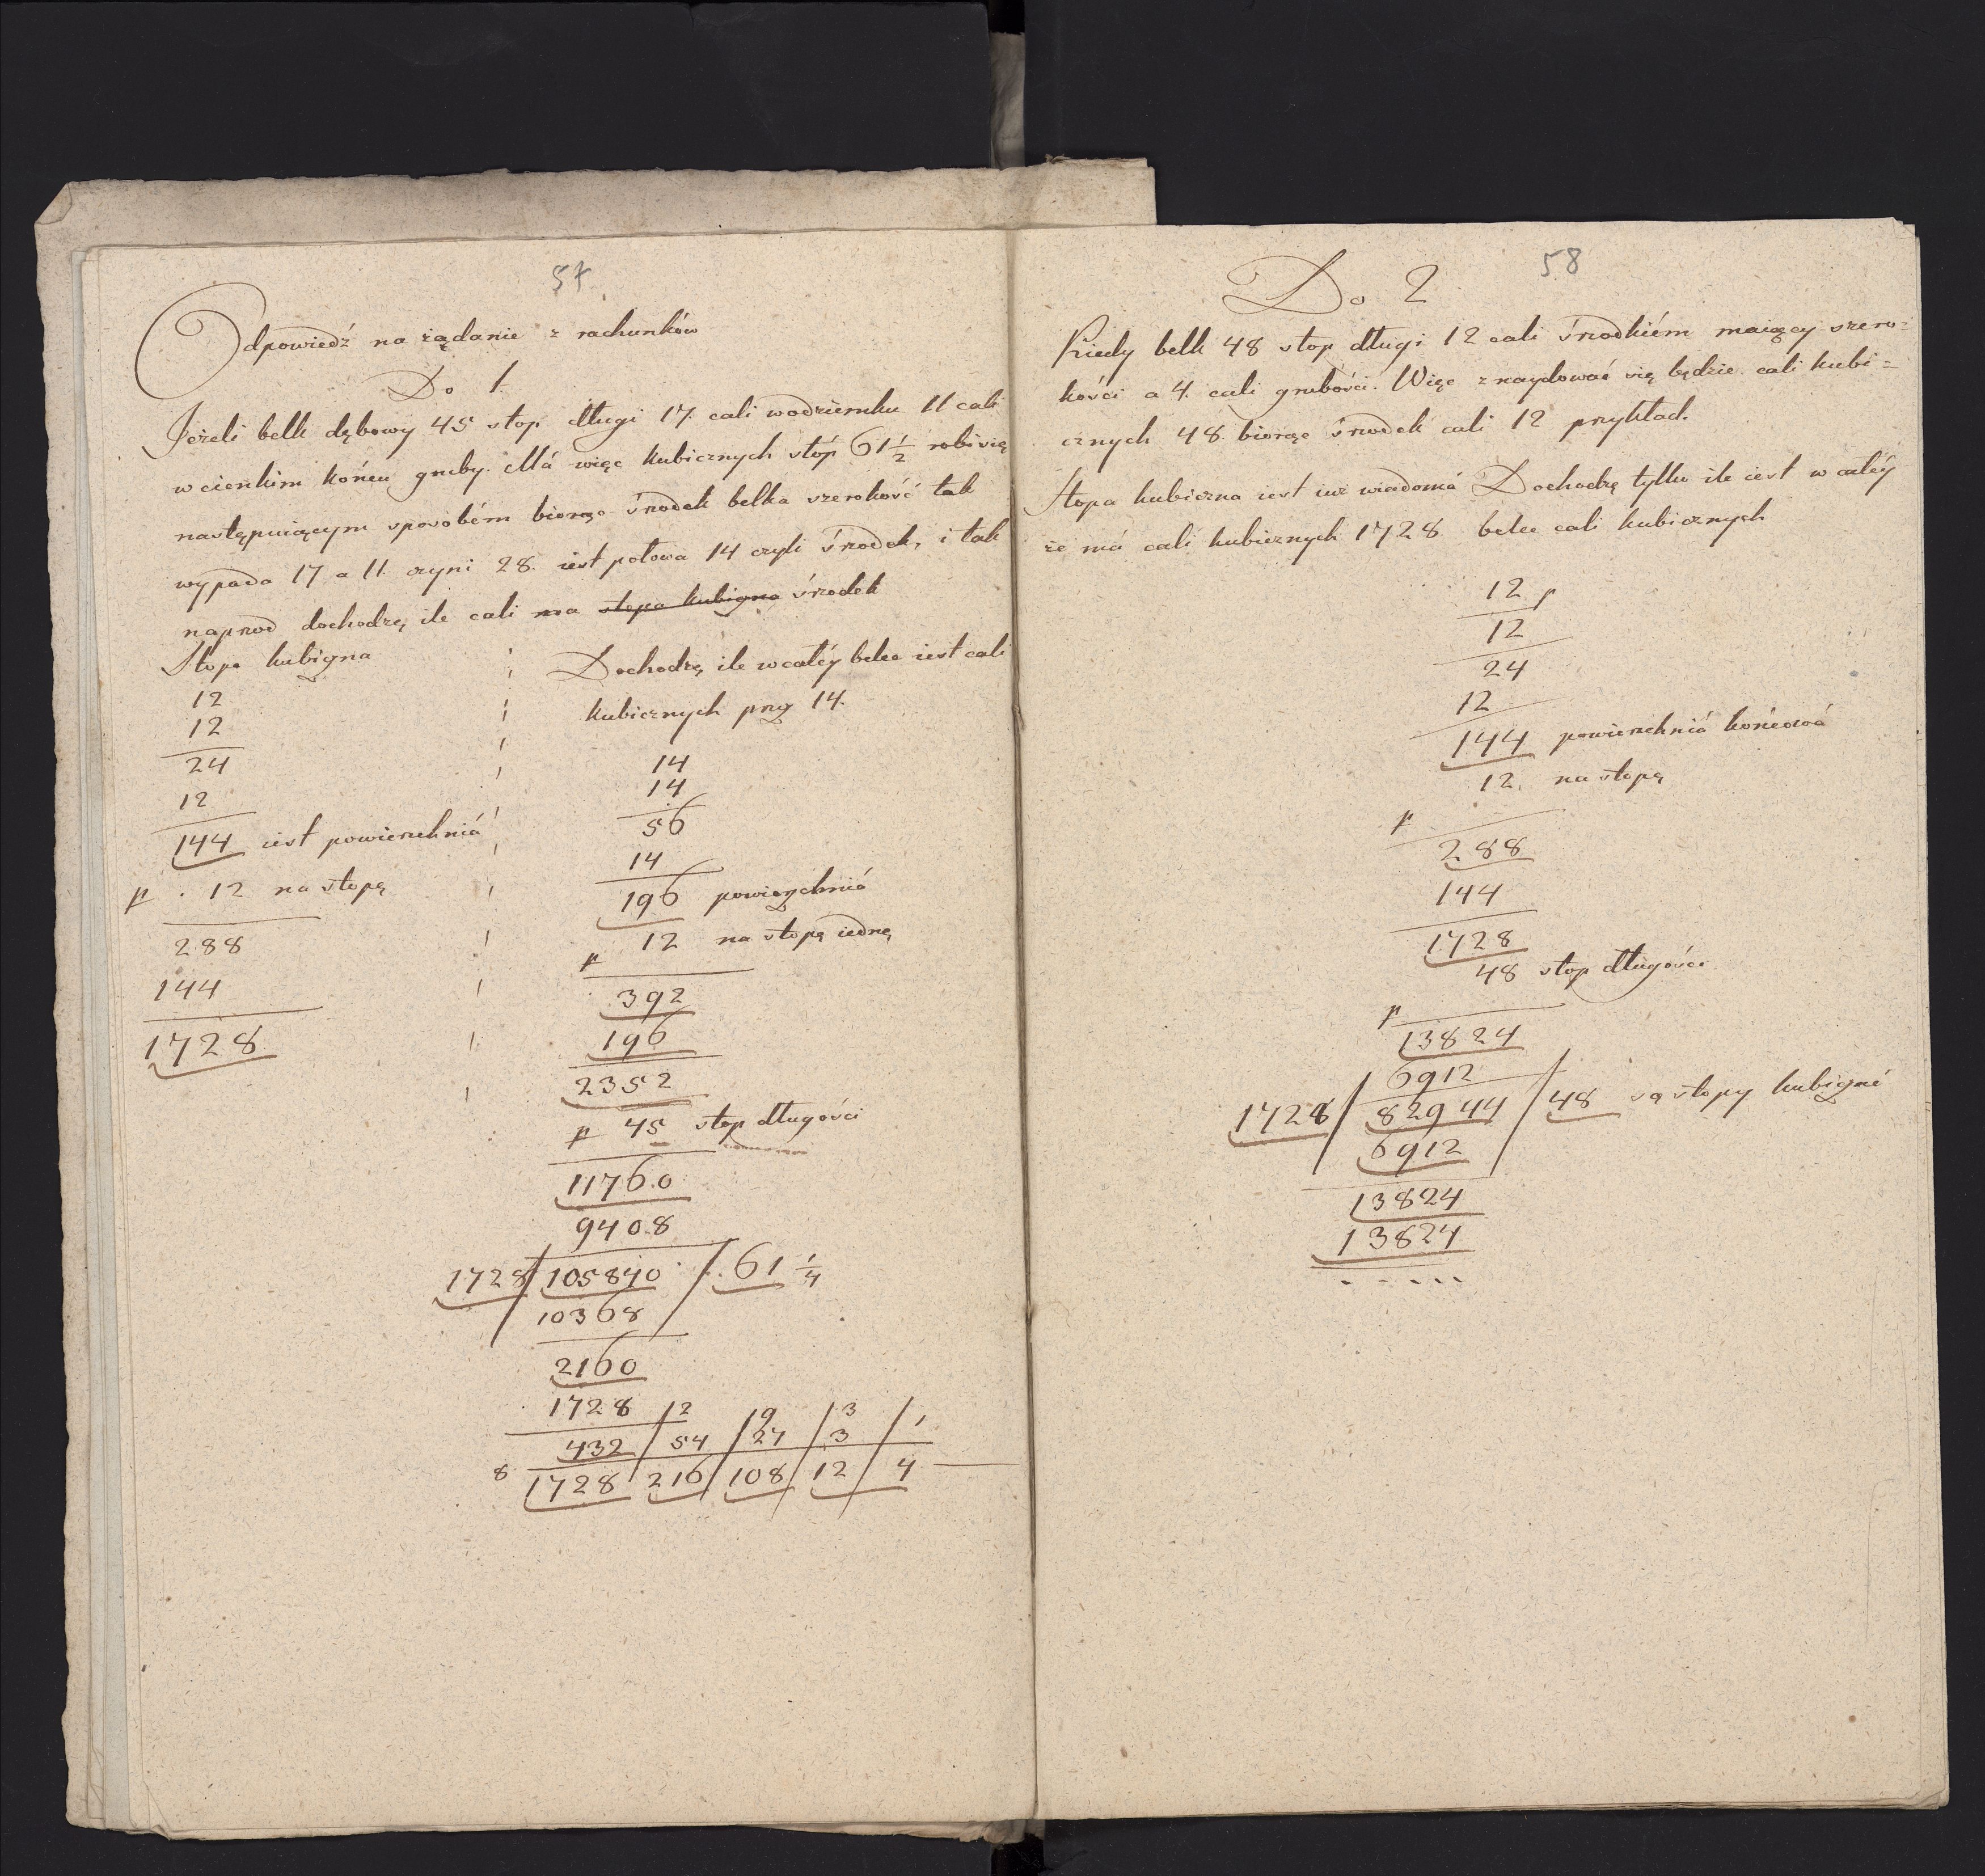 57.
Odpowiedź na żądanie z rachunków
Do 1.
Jeżeli belk dębowy 45 stop długi 17. cali wodziemku 11 cali
w cienkim końcu gruby. Má więc kubicznych stóp 61 1/2 robi się
następuiącym sposobém biorąc środek belka szerokość tak
wypada 17 a 11. czyni 28. iest połowa 14 czyli środek, i tak
naprzod dochodzę, ile cali ma stopa kubigna środek
Stopa kubigna
12
12
24
12
144 iest powierzchniá
p . 12 na stopę
288
144
1728
Dochodzę, ile w całéy belce iest cali
kubicznych przy 14.
14
14
56
14
196 powiezchniá
12 na stopę iednę
p
392
196
2352
p 45 stop długości
11760
9408
1728 / 105840 / 61 1/4
10368
2160
1728 / 2 / 9 / 3 / 1
432 / 54 / 27 / 3
8 1728 / 216 / 108 / 12 / 4
58
Do 2
Kiedy belk 48 stop długi 12 cali środkiém maiący szero=
kości a 4. cali grubości. Więc znaydować się będzie cali kubi=
cznych 48. biorąc środek cali 12 przykład.
Stopa kubiczna iest iuż wiadomá Dochodzę tylko ile iest w całéy
że má cali kubicznych 1728 belce cali kubicznych
12 p
12
24
12
144 powierzchniá końcowá
12. na stopę
p
288
144
1728
48 stop długości
p
13824
6912
1728 / 82944 / 48 są stopy kubigné
6912
13824
13824
. . . . .